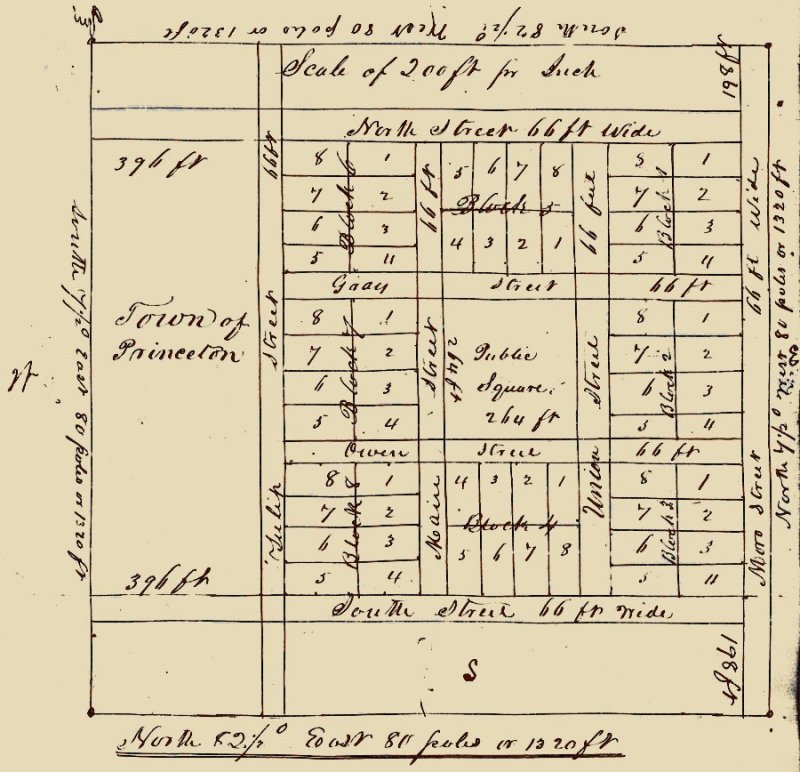 South 82½° West 80 poles or 1320 ft
Scale of 200 ft pr Inch
198 ft
North Street 66 ft Wide
396 ft
66 ft
8 1
7 2
6 3
5 4
Block 6
66 ft
5 6 7 8
Block 5
4 3 2 1
66 feet
8 1
7 2
6 3
5 4
Block 1
66 ft Wide
Street 66 ft
Town of
Princeton
Street
8 1
7 2
6 3
5 4
Block 7
Street
264 ft
Public
Square
264 ft
Street
8 1
7 2
6 3
5 4
Block 2
Owen Street 66 ft
Tulip
8 1
7 2
6 3
5 4
Block 8
Main
4 3 2 1
Block 4
5 6 7 8
Union
8 1
7 2
6 3
5 4
Block 3
Moro Street
396 ft
South Street 66 ft Wide
S
198 ft
South 7½° East 80 poles or 1320 ft
North 7½° West 80 poles or 1320 ft
North 82½° East 80 poles or 1320 ft